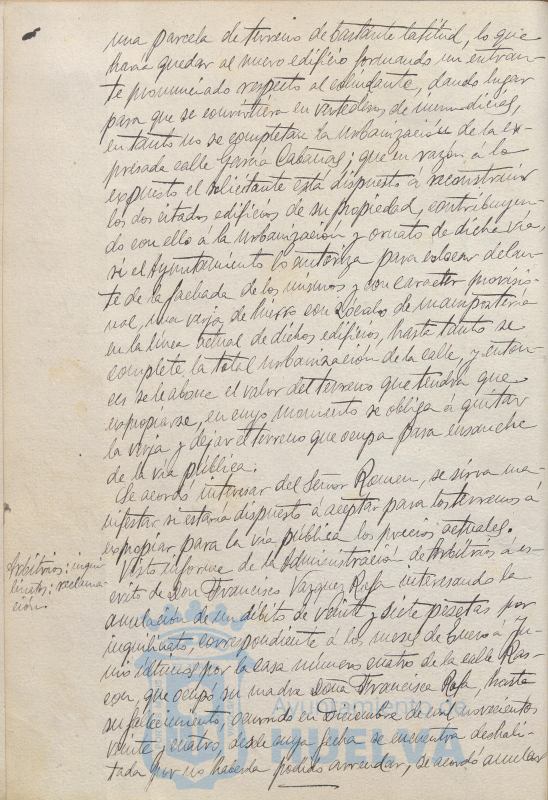 una parcela de terreno de bastante latitud, lo que
haria quedar al nuevo edificio formando un entran-
te pronunciado respecto al colindante, dando lugar
para que se convirtiera en vertederos de inmundicias,
en tanto no se completan la urbanización de la ex-
presada calle Garcia Cabañas; que en razón á lo
expuesto el solicitante está dispuesto á reconstruir
los dos citados edificios de su propiedad, contribuyen-
do con ello á la urbanizacion y ornato de dicha via,
si el Ayuntamiento lo autoriza para colocar delan-
te de la fachada de los mismos y con caracter provisio-
nal, una verja de hierro con zócalo de mamposteria
en la línea actual de dichos edificios, hasta tanto se
complete la total urbanización de la calle, y enton-
ces se le abone el valor del terreno que tendrá que
expropiarse, en cuyo momento se obliga á quitar
la verja y dejar el terreno que ocupa para ensanche
de la via pública.
Se acordó interesar del Señor Romeu, se sirva ma-
nifestar si estaria dispuesto á aceptar para los terrenos á
expropiar para la via pública los precios actuales.
Arbitrios: inqui
linatos: reclama-
ción.
Visto informe de la Administració de Arbitrios á es-
crito de Don Francisco Vazquez Rafa interesando la
anulación de un débito de veinte y siete pesetas por
inquilinato, correspondiente á los meses de Enero á Ju-
nio últimos por la casa numero cuatro de la calle Ras-
con, que ocupó su madre Doña Francisca Rafa, hasta
su fallecimiento, ocurrido en Diciembre de mil novecientos
veinte y cuatro, desde cuya fecha se encuentra deshabi-
tada por no haberla podido arrendar, se acordó anular
Ayuntamiento de
HUELVA